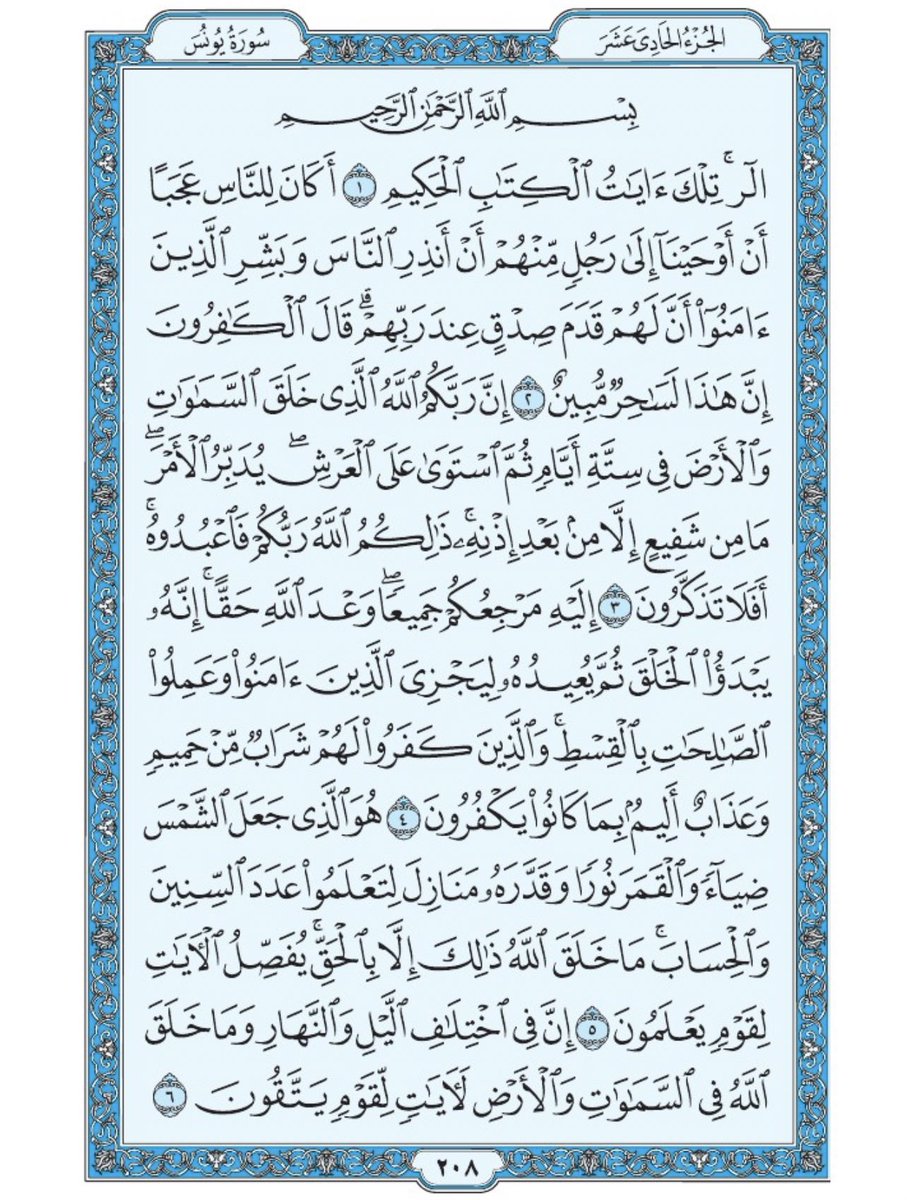 الجُزْءُ الحَادِى عَشَرَ
سُورَةُ يُونُسَ
بِسْمِ ٱللَّهِ ٱلرَّحْمَٰنِ ٱلرَّحِيمِ
الٓر ۚ تِلْكَ ءَايَٰتُ ٱلْكِتَٰبِ ٱلْحَكِيمِ ١ أَكَانَ لِلنَّاسِ عَجَبًا
أَنْ أَوْحَيْنَآ إِلَىٰ رَجُلٍ مِّنْهُمْ أَنْ أَنذِرِ ٱلنَّاسَ وَبَشِّرِ ٱلَّذِينَ
ءَامَنُوٓا۟ أَنَّ لَهُمْ قَدَمَ صِدْقٍ عِندَ رَبِّهِمْ ۗ قَالَ ٱلْكَٰفِرُونَ
إِنَّ هَٰذَا لَسَٰحِرٌ مُّبِينٌ ٢ إِنَّ رَبَّكُمُ ٱللَّهُ ٱلَّذِى خَلَقَ ٱلسَّمَٰوَٰتِ
وَٱلْأَرْضَ فِى سِتَّةِ أَيَّامٍ ثُمَّ ٱسْتَوَىٰ عَلَى ٱلْعَرْشِ ۖ يُدَبِّرُ ٱلْأَمْرَ ۖ
مَا مِن شَفِيعٍ إِلَّا مِنۢ بَعْدِ إِذْنِهِۦ ۚ ذَٰلِكُمُ ٱللَّهُ رَبُّكُمْ فَٱعْبُدُوهُ ۚ
أَفَلَا تَذَكَّرُونَ ٣ إِلَيْهِ مَرْجِعُكُمْ جَمِيعًا ۖ وَعْدَ ٱللَّهِ حَقًّا ۚ إِنَّهُۥ
يَبْدَؤُا۟ ٱلْخَلْقَ ثُمَّ يُعِيدُهُۥ لِيَجْزِىَ ٱلَّذِينَ ءَامَنُوا۟ وَعَمِلُوا۟
ٱلصَّٰلِحَٰتِ بِٱلْقِسْطِ ۚ وَٱلَّذِينَ كَفَرُوا۟ لَهُمْ شَرَابٌ مِّنْ حَمِيمٍ
وَعَذَابٌ أَلِيمٌۢ بِمَا كَانُوا۟ يَكْفُرُونَ ٤ هُوَ ٱلَّذِى جَعَلَ ٱلشَّمْسَ
ضِيَآءً وَٱلْقَمَرَ نُورًا وَقَدَّرَهُۥ مَنَازِلَ لِتَعْلَمُوا۟ عَدَدَ ٱلسِّنِينَ
وَٱلْحِسَابَ ۚ مَا خَلَقَ ٱللَّهُ ذَٰلِكَ إِلَّا بِٱلْحَقِّ ۚ يُفَصِّلُ ٱلْءَايَٰتِ
لِقَوْمٍ يَعْلَمُونَ ٥ إِنَّ فِى ٱخْتِلَٰفِ ٱلَّيْلِ وَٱلنَّهَارِ وَمَا خَلَقَ
ٱللَّهُ فِى ٱلسَّمَٰوَٰتِ وَٱلْأَرْضِ لَءَايَٰتٍ لِّقَوْمٍ يَتَّقُونَ ٦
٢٠٨